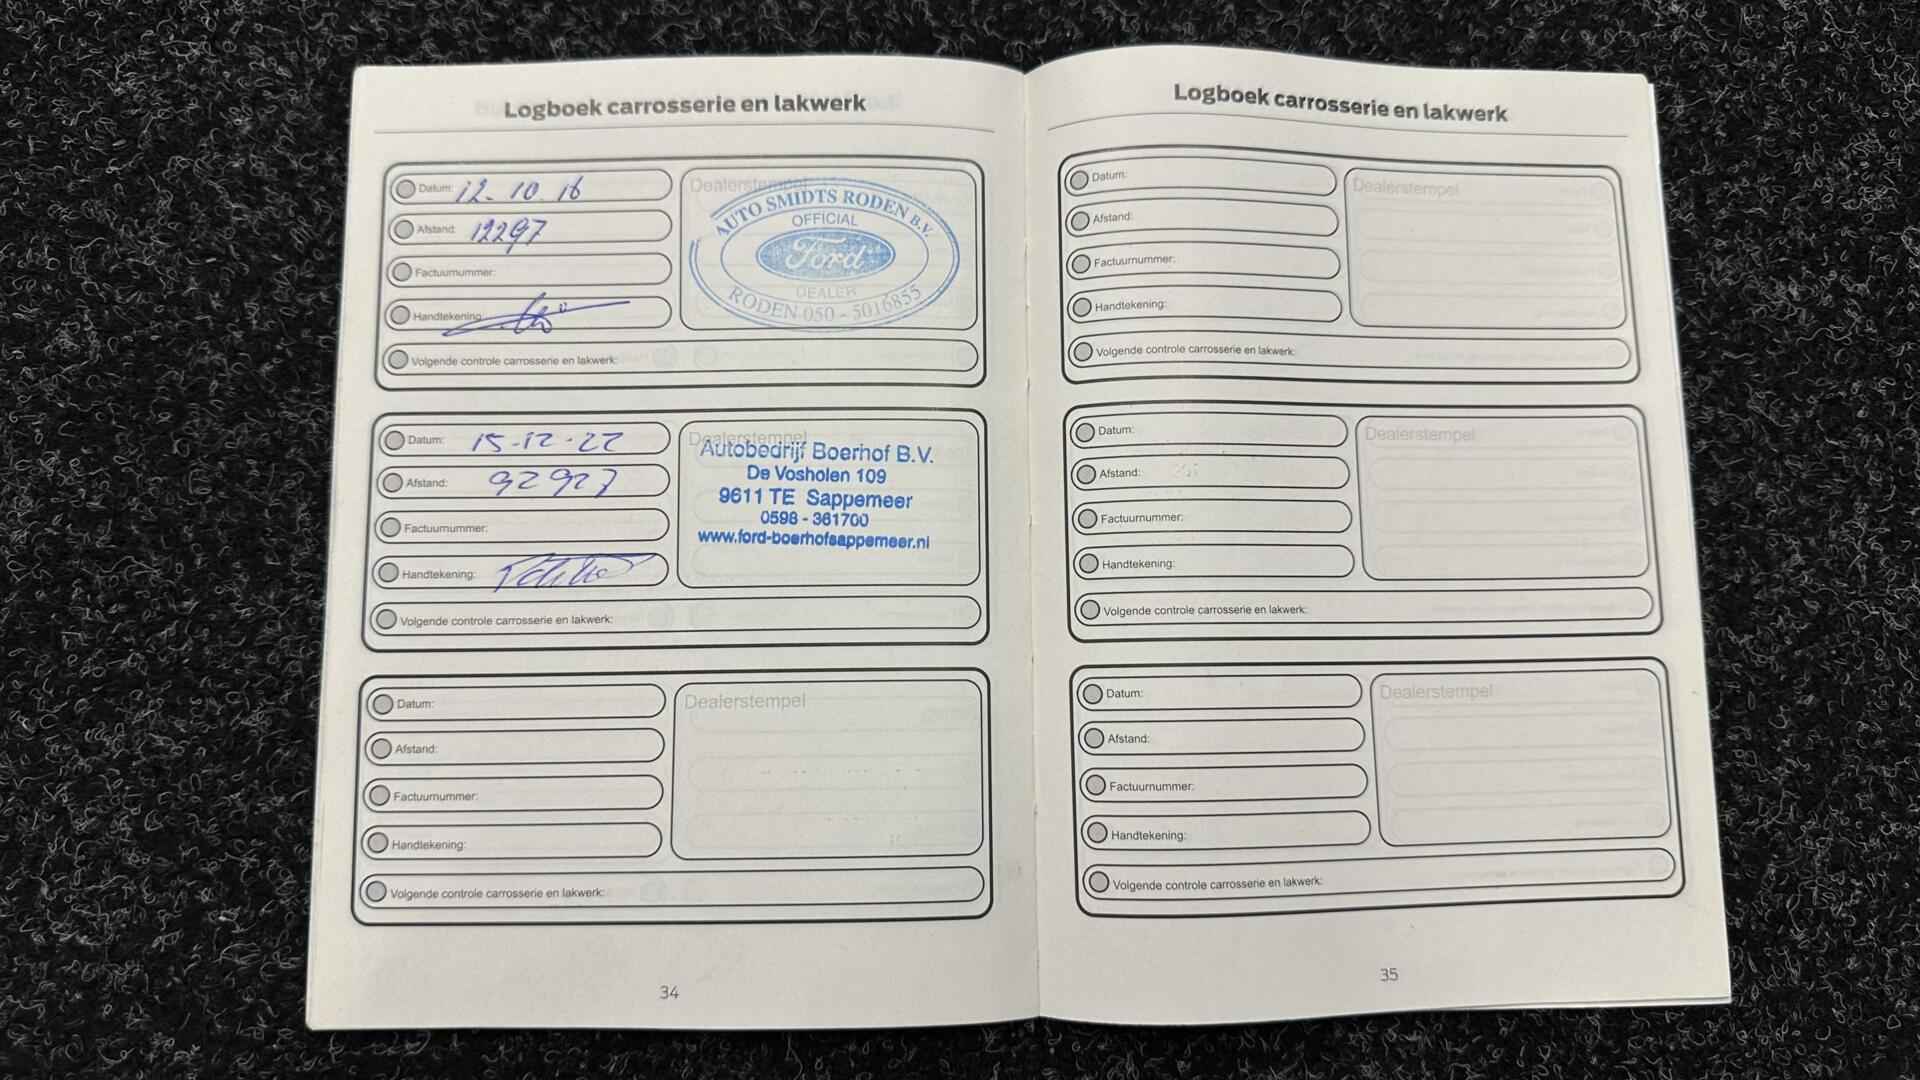 Logboek carrosserie en lakwerk
Datum: 12-10-16
Afstand: 12297
Factuurnummer:
Handtekening:
Volgende controle carrosserie en lakwerk:
Dealerstempel
AUTO SMIDTS RODEN B.V.
OFFICIAL
Ford
DEALER
RODEN 050 - 5016855
Datum: 15-12-22
Afstand: 92927
Factuurnummer:
Handtekening:
Volgende controle carrosserie en lakwerk:
Dealerstempel
Autobedrijf Boerhof B.V.
De Vosholen 109
9611 TE Sappemeer
0598 - 361700
www.ford-boerhofsappemeer.nl
Datum:
Afstand:
Factuurnummer:
Handtekening:
Volgende controle carrosserie en lakwerk:
Dealerstempel
34
Logboek carrosserie en lakwerk
Datum:
Afstand:
Factuurnummer:
Handtekening:
Volgende controle carrosserie en lakwerk:
Dealerstempel
Datum:
Afstand:
Factuurnummer:
Handtekening:
Volgende controle carrosserie en lakwerk:
Dealerstempel
Datum:
Afstand:
Factuurnummer:
Handtekening:
Volgende controle carrosserie en lakwerk:
Dealerstempel
35